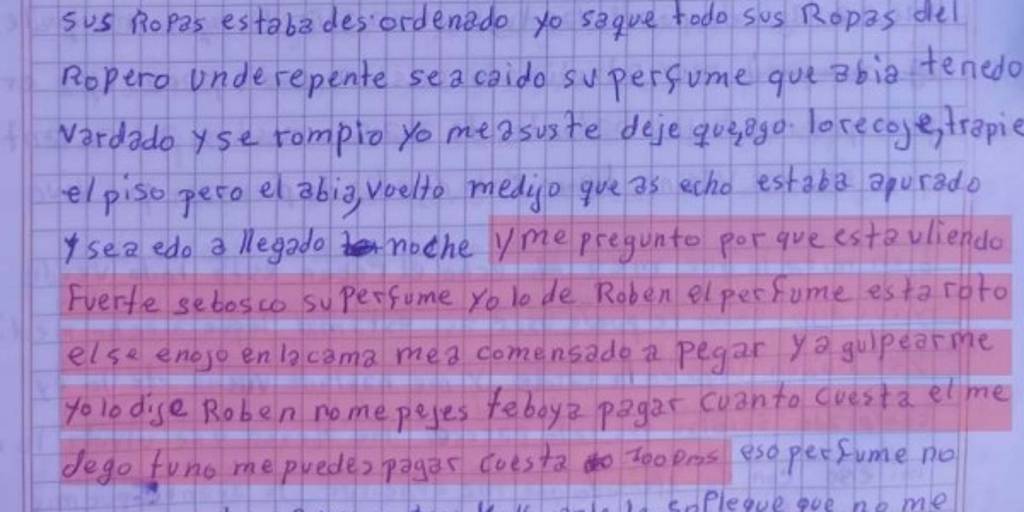 sus Ropas estaba desordenado yo saque todo sus Ropas del
Ropero underepente seacaido su perfume que abia tenedo
vardado y se rompio yo measuste deje que,ago. lorecoje,trapie
el piso pero el abia,voelto medijo que as echo estaba apurado
y sea edo a llegado noche y me pregunto por que esta uliendo
fuerte sebosco su perfume yo lo de Roben el perfume esta roto
el se enojo en la cama mea comensado a pegar y a gulpearme
yo lo dije Roben no me pejes teboya pagar cuanto cuesta el me
dego tuno me puedes pagar cuesta eso perfume no
que no me